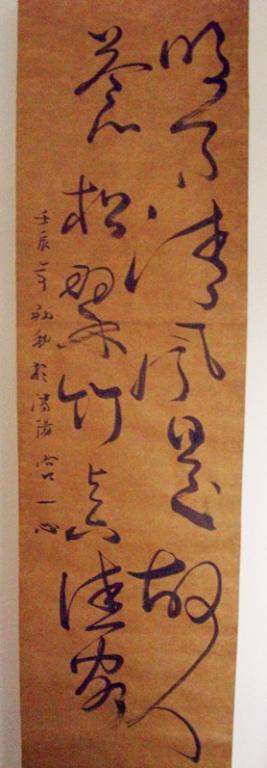 明月清風是故人
蒼松翠竹真佳客
壬辰年初秋於陽一心